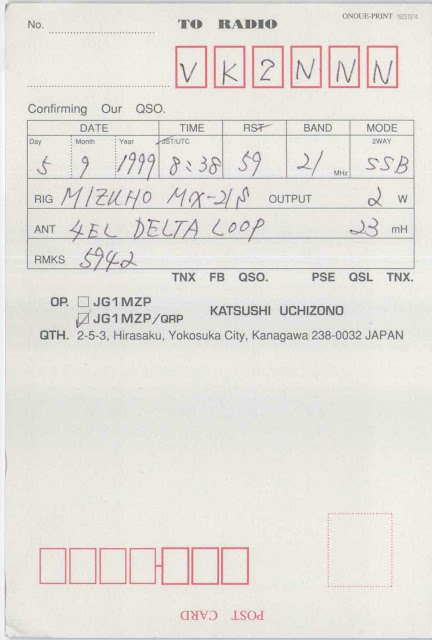 ONOUE-PRINT
No. TO RADIO
VK2NNN
Confirming Our QSO.
DATE TIME RST BAND MODE
Day Month Year JST/UTC 2WAY
5 9 1999 8:38 59 21 MHz SSB
RIG MIZUHO MX-21S OUTPUT 2 W
ANT 4EL DELTA LOOP 23 mH
RMKS 5942
TNX FB QSO. PSE QSL TNX.
OP. JG1MZP
JG1MZP/QRP KATSUSHI UCHIZONO
QTH. 2-5-3, Hirasaku, Yokosuka City, Kanagawa 238-0032 JAPAN
POST CARD